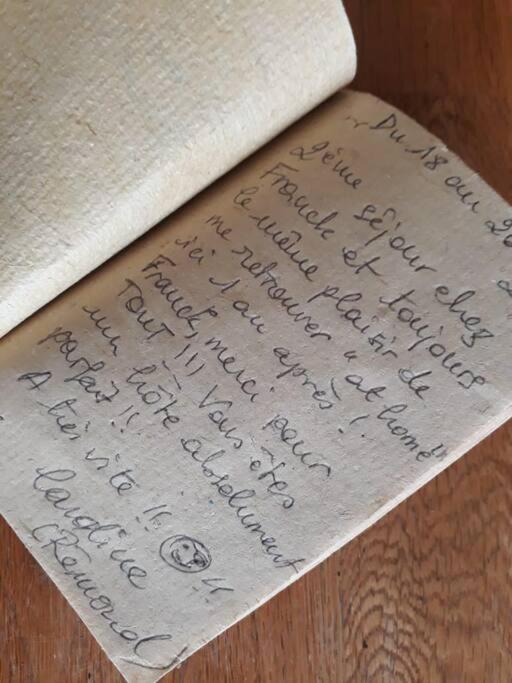 Du 18 au 20
2ème séjour chez
Franck et toujours
le même plaisir de
me retrouver "at home"
ici 1 an après !
Franck, merci pour
TOUT !!! Vous êtes
un hôte absolument
parfait !!
A très vite !!
Claudine
(Remond)